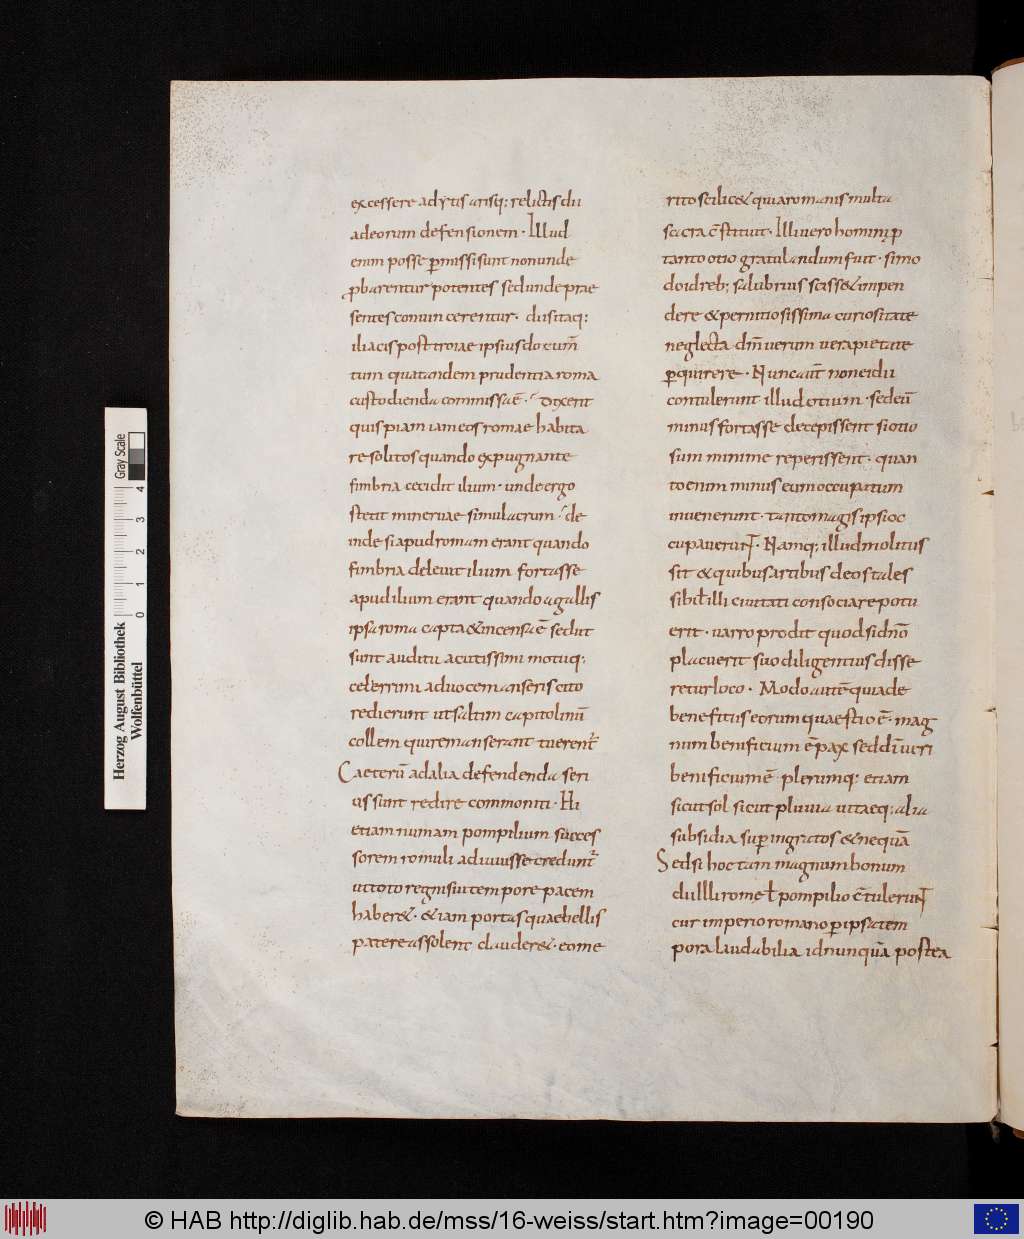 excessere adytis arisq; relictis dii
adeorum defensionem · Illud
enim posse p̄missi sunt non unde
ꝓbarentur potentes sed unde prae
sentes convincerentur · dii sitaq;
iliacis post troiae ipsius do cum̄
tum quatandem prudentia roma
custodienda commissa ē · Dixerit
quispiam iam eos romae habita
re solitos quando expugnante
fimbria cecidit ilium · unde ergo
stetit minervae simulacrum · de
inde si apud romam erant quando
fimbria delevit ilium fortasse
apud ilium erant quando agallis
ipsa roma capta & incensa ē sed ut
sunt auditu acutissimi motuq;
celerrimi advocem anseris cito
redierunt ut saltim capitolinū
collem qui remanserant tuerent᷑
Caeterū ad alia defendenda seri
us sunt redire commoniti · Hi
etiam numam pompilium succes
sorem romuli adiuvisse credunt᷑
ut toto regni sui tempore pacem
haber& · & iam portas quae bellis
patere assolent clauder& · eo me
rito scilic& quia romanis multa
sacra c̄stituit · Illi vero homini ꝓ
tanto otio gratulandum fuit · si mo
do id reb; salubrius sciss& impen
dere & pernitiosissima curiositate
neglecta dm̄ verum vera pietate
ꝑquirere · Nunc aut̄ non eidii
contulerunt illud otium · sed eū
minus fortasse decepissent si otio
sum minime reperissent · quan
to enim minus eum occupatum
invenerunt · tanto magis ipsi oc
cupaverunt · Namq; illud molitus
sit & quibus artibus deos tales
sibi ł illi civitati consociare potu
erit · varro prodit quod si dn̄o
placuerit suo diligentius disse
retur loco · Modo autē quia de
benefitiis eorum quaestio ē · mag
num benificium ē pax sed dī veri
benificium ē plerumq; etiam
sicut sol sicut pluvia vitaeq; alia
subsidia suꝑ ingratos & nequā
Sed si hoc tam magnum bonum
dii illi rome ł pompilio c̄tulerunt
cur imperio romano ꝑ ipsa tem
pora laudabilia id nunquā postea
Herzog August Bibliothek
Wolfenbüttel
0 1 2 3 4
Gray Scale
© HAB http://diglib.hab.de/mss/16-weiss/start.htm?image=00190